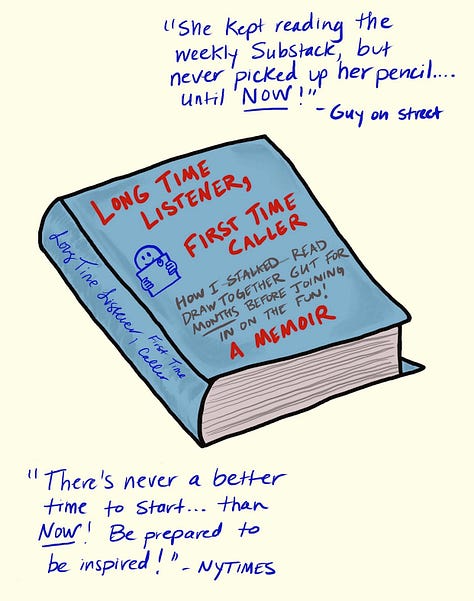 "She kept reading the
weekly Substack, but
never picked up her pencil....
until NOW!"
- Guy on street
LONG TIME
LISTENER,
FIRST TIME
CALLER
HOW I STALKED READ
DRAW TOGETHER GUT FOR
MONTHS BEFORE JOINING
IN ON THE FUN!
A MEMOIR
Long Time Listener, First Time
Caller
"There's never a better
time to start... than
NOW! Be prepared to
be inspired!" - NYTIMES